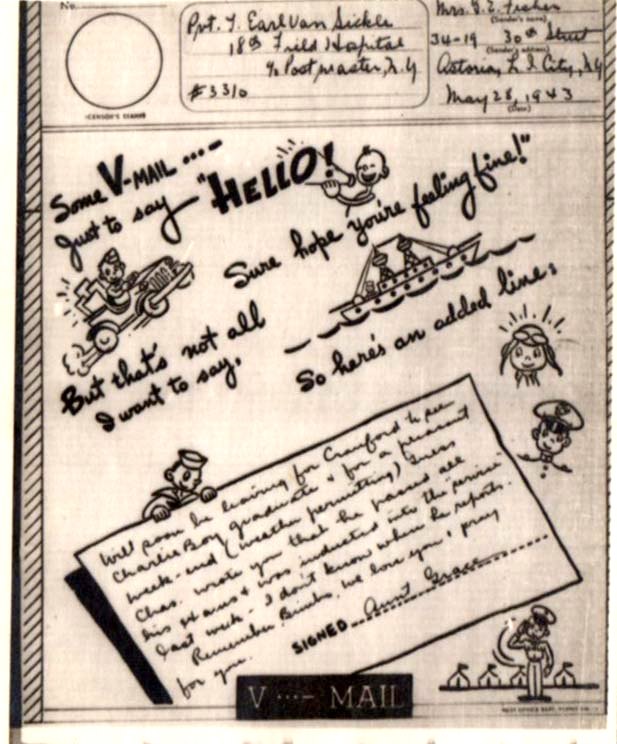 No.
Pvt. T. Earl Van Sickle
18th Field Hospital
% Postmaster, N.Y.
#3310
CENSOR'S STAMP
Mrs. G. E. Fisher
(Sender's name)
34-19 30th Street
(Sender's address)
Astoria, L I City, N.Y
May 28, 1943
(Date)
Some V-MAIL ...-
Just to say "HELLO!
Sure hope you're feeling fine!"
But that's not all
I want to say.
So here's an added line:
Will soon be leaving for Cranford to see
Charlie Boy graduate & for a pleasant
week-end (weather permitting) Guess
Chas. wrote you that he passed all
his exams & was inducted into the service
last week - I don't know when he reports.
Remember, we love you & pray
for you.
SIGNED Aunt Grace
V ...- MAIL